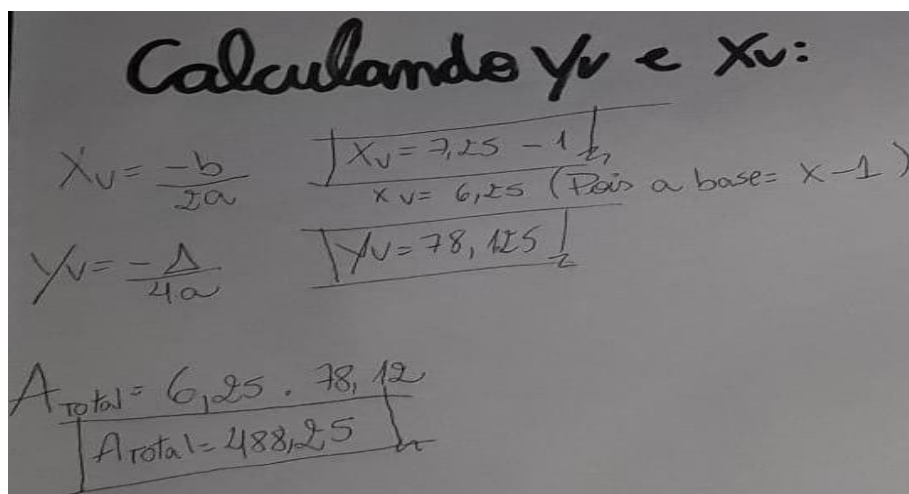 Calculando Yv e Xv:
Xv = -b/2a
Xv = 7,25 - 1
Xv = 6,25 (Pois a base = X-1)
Yv = -Δ/4a
Yv = 78,125
A Total = 6,25 . 78,12
A Total = 488,25